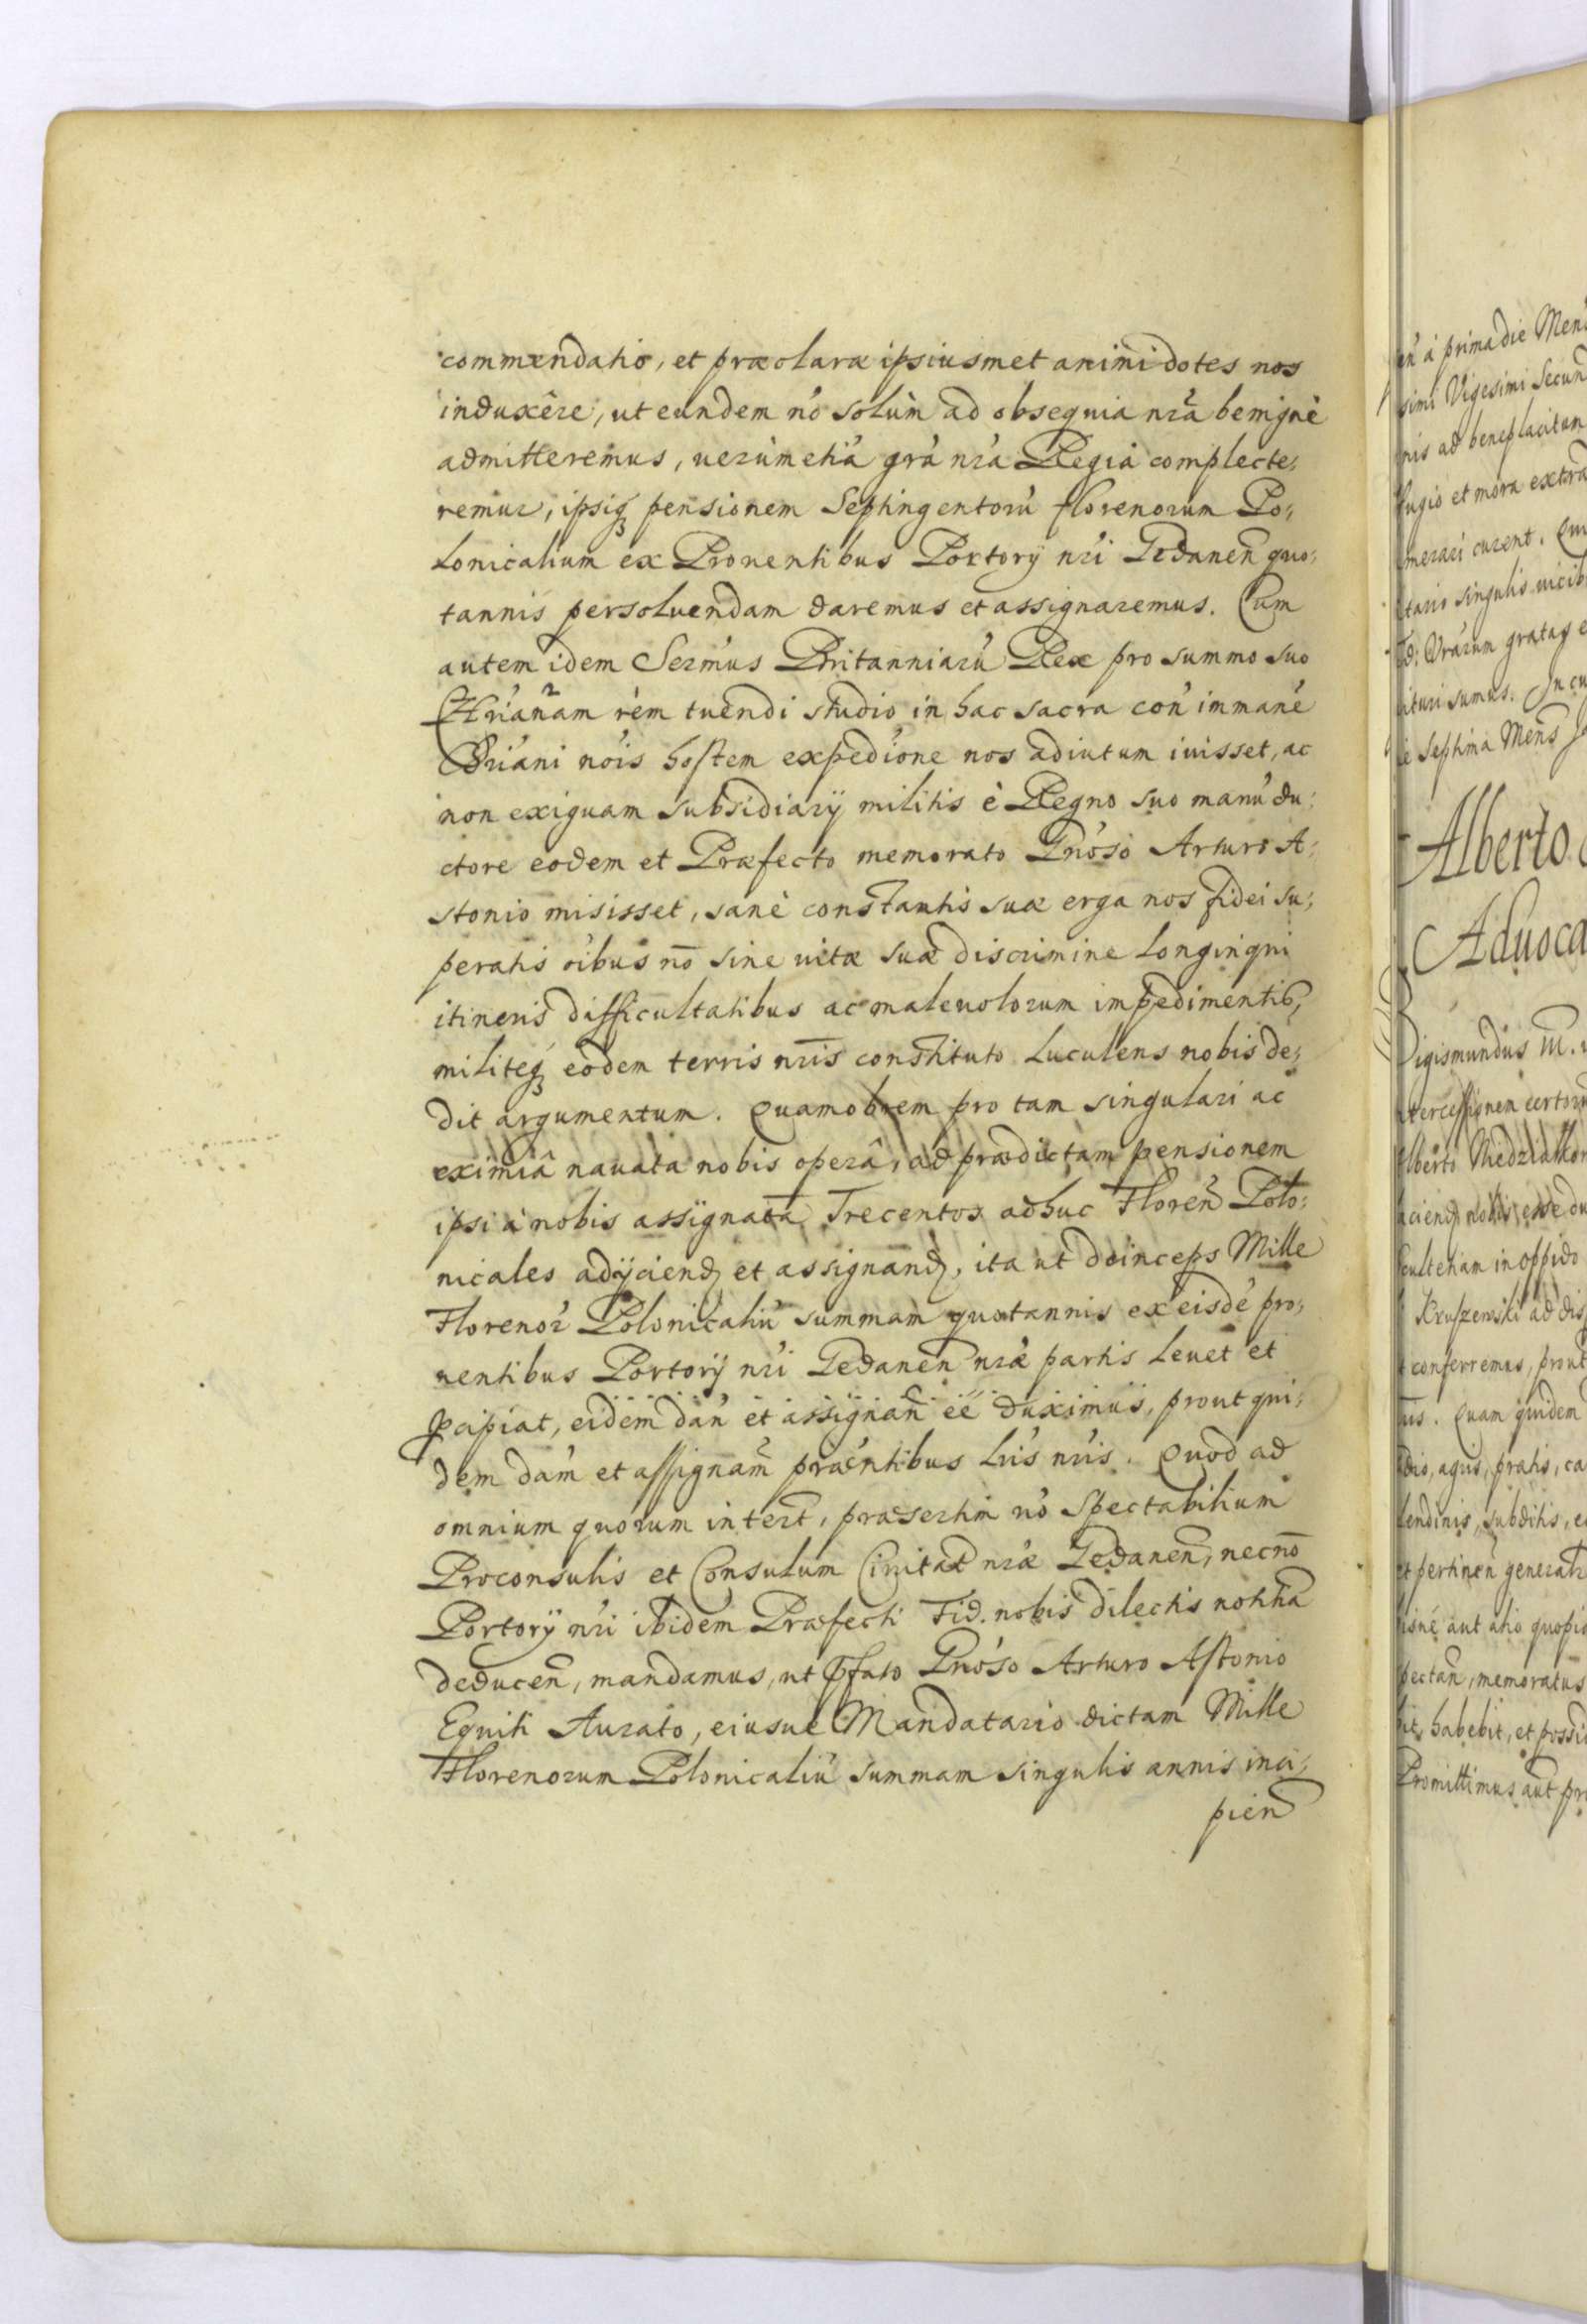 commendatio, et præclaræ ipsiusmet animi dotes nos
induxêre, ut eundem nõ solùm ad obsequia nrã benignè
admitteremus, uerùm etiã grã nrã Regia complecte;
remur, ipsiq; pensionem Septingentorũ florenorum Po;
lonicalium ex Prouentibus Portorij nri Gedanen̄ quo;
tannis persoluendam daremus et assignaremus. Cum
autem idem Sermus Britanniarũ Rex pro summo suo
Chrianam rem tuendi studio in hac sacra con̄ immanē
Chriani nois hostem expedione nos adiutum iuisset, ac
non exiguam subsidiarij militis è Regno suo manũ du;
ctore eodem et Præfecto memorato Gnoso Arturo A;
stonio misisset, sanè constantis suæ erga nos fidei su;
peratis oibus nō sine uitæ suæ discrimine longinqui
itineris difficultatibus ac maleuolorum impedimentib,
militeq; eodem terris nris constituto luculens nobis de;
dit argumentum. Quamobrem pro tam singulari ac
eximiâ nauata nobis operâ, ad prædictam pensionem
ipsi à nobis assignatã Trecentos adhuc Floren̄ Polo;
nicales adijciend et assignand, ita ut deinceps Mille
Florenor Polonicaliũ summam quotannis ex eisdē pro;
uentibus Portorij nri Gedanen̄ nræ partis leuet et
pcipiat, eidem dan̄ et assignan̄ eē duximus, prout qui;
dem dam̄ et assignam̄ præntibus lris nris. Quod ad
omnium quorum intert, præsertim uō Spectabilium
Proconsulis et Consulum Ciuitat nræ Gedanen̄, necnō
Portorij nri ibidem Præfecti Fid. nobis dilectis notitiã
deducen̄, mandamus, ut pfato Gnoso Arturo Astonio
Equiti Aurato, eiusue Mandatario dictam Mille
Florenorum Polonicaliũ summam singulis annis inci;
pien̄
en̄ à prima die Men
simi Vigesimi Secun
nis ad beneplacitum
fugio et mora extra
merari curent.
tario singulis uicib
Vrarum gratas e
ituri sumus. In cu
Septima Mens
Alberto
Aduoca
Sigismundus
ntercessionem certoru
Alberto
in oppido
Kruszewski ad
conferremus, prout
Quam quidem
agris, pratis, ca
subditis, e
et pertinen̄ generatr
aut alio quopi
spectan̄, memoratus
habebit, et possid
Promittimus aut pr